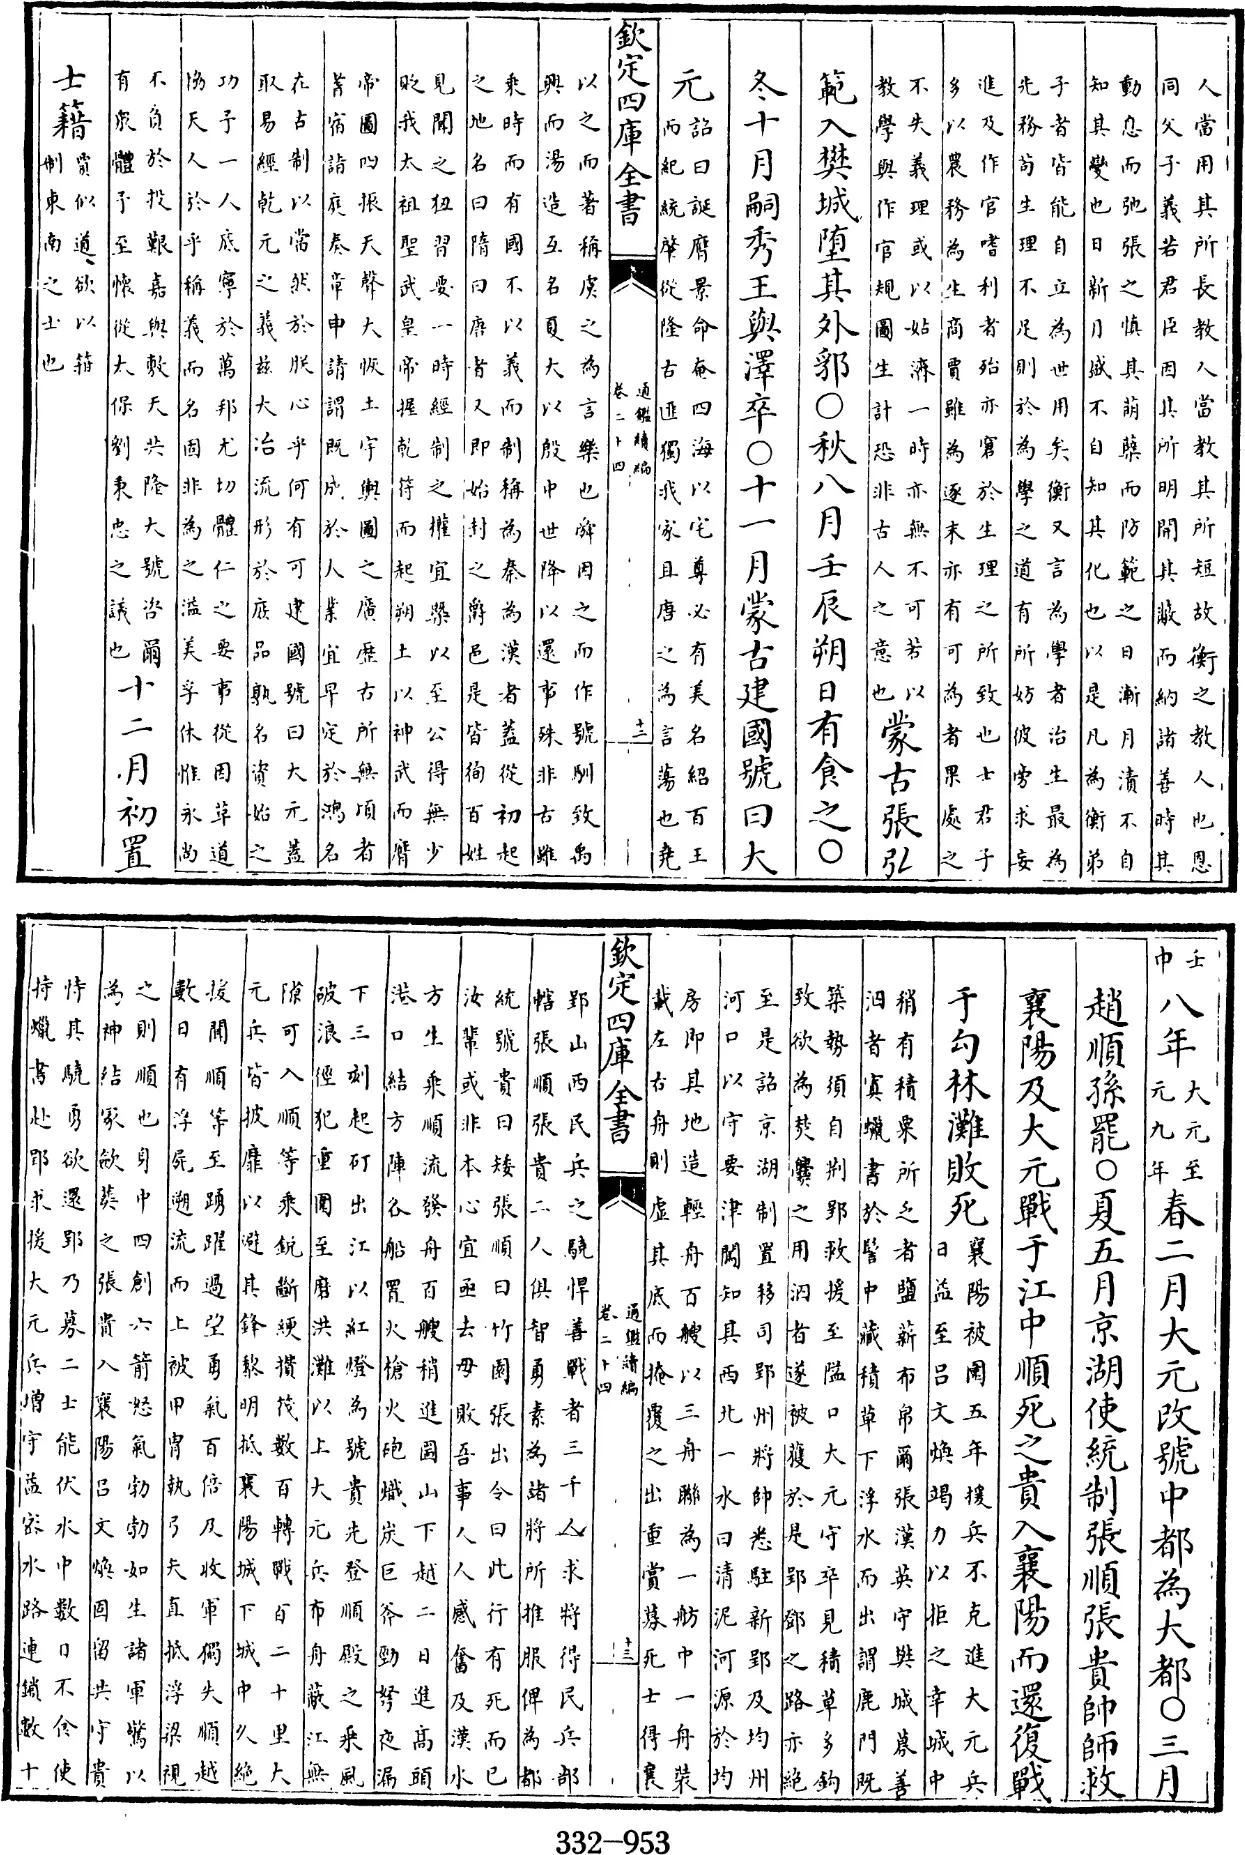 人當用其所長教人當教其所短故衡之教人也恩
同父子義若君臣因其所明開其蔽而納諸善時其
動息而弛張之慎其萌蘖而防範之日漸月漬不自
知其變也日新月盛不自知其化也以是凡為衡弟
子者皆能自立為世用矣衡又言為學者治生最為
先務苟生理不足則於為學之道有所妨彼旁求妄
進及作官嗜利者殆亦窘於生理之所致也士君子
多以農務為生商賈雖為逐末亦有可為者果處之
不失義理或以姑濟一時亦無不可若以
教學與作官規圖生計恐非古人之意也
蒙古張弘
範入樊城墮其外郛○秋八月壬辰朔日有食之○
冬十月嗣秀王與澤卒○十一月蒙古建國號曰大
元
詔曰誕膺景命奄四海以宅尊必有美名紹百王
而紀統肇從隆古匪獨我家且唐之為言蕩也堯
欽定四庫全書
通鑑續編
卷二十四
十二
以之而著稱虞之為言樂也舜因之而作號馴致禹
興而湯造互名夏大以殷中世降以還事殊非古雖
乘時而有國不以義而制稱為秦為漢者蓋從初起
之地名曰隋曰唐者又即始封之爵邑是皆徇百姓
見聞之狃習要一時經制之權宜槩以至公得無少
貶我太祖聖武皇帝握乾符而起朔土以神武而膺
帝圖四振天聲大恢土宇輿圖之廣歷古所無頃者
耆宿詣庭奏章申請謂既成於人業宜早定於鴻名
在古制以當然於朕心乎何有可建國號曰大元蓋
取易經乾元之義茲大冶流形於庶品孰名資始之
功予一人底寧於萬邦尤切體仁之要事從因革道
協天人於乎稱義而名固非為之溢美孚休惟永尚
不負於投艱嘉與敷天共隆大號咨爾
有衆體予至懷從太保劉秉忠之議也
十二月初置
士籍
賈似道欲以籍
制東南之士也
壬
申
八年
大元至
元九年
春二月大元改號中都為大都○三月
趙順孫罷○夏五月京湖使統制張順張貴帥師救
襄陽及大元戰于江中順死之貴入襄陽而還復戰
于勾林灘敗死
襄陽被圍五年援兵不克進大元兵
日益至呂文煥竭力以拒之幸城中
稍有積粟所乏者鹽薪布帛爾張漢英守樊城募善
泅者寘蠟書於髻中藏積草下浮水而出謂鹿門既
築勢須自荆郢救援至隘口大元守卒見積草多鈎
致欲為焚爨之用泅者遂被獲於是郢鄧之路亦絶
至是詔京湖制置移司郢州將帥悉駐新郢及均州
河口以守要津聞知其西北一水曰清泥河源於均
房即其地造輕舟百艘以三舟聯為一舫中一舟裝
載左右舟則虛其底而掩覆之出重賞募死士得襄
欽定四庫全書
通鑑續編
卷二十四
十三
郢山西民兵之驍悍善戰者三千人求將得民兵部
轄張順張貴二人俱智勇素為諸將所推服俾為都
統號貴曰矮張順曰竹園張出令曰此行有死而已
汝輩或非本心宜亟去毋敗吾事人人感奮及漢水
方生乘順流發舟百艘稍進圍山下越二日進高頭
港口結方陣各船置火槍火砲熾炭巨斧勁弩夜漏
下三刻起矴出江以紅燈為號貴先登順殿之乘風
破浪徑犯重圍至磨洪灘以上大元兵布舟蔽江無
隙可入順等乘鋭斷絙攢筏數百轉戰百二十里大
元兵皆披靡以避其鋒黎明抵襄陽城下城中久絶
援聞順等至踴躍過望勇氣百倍及收軍獨失順越
數日有浮屍遡流而上被甲冑執弓矢直抵浮梁視
之則順也身中四創六箭怒氣勃勃如生諸軍驚以
為神結冢歛葬之張貴入襄陽呂文煥固留共守貴
恃其驍勇欲還郢乃募二士能伏水中數日不食使
持蠟書赴郢求援大元兵增守益密水路連鎖數十
332—953